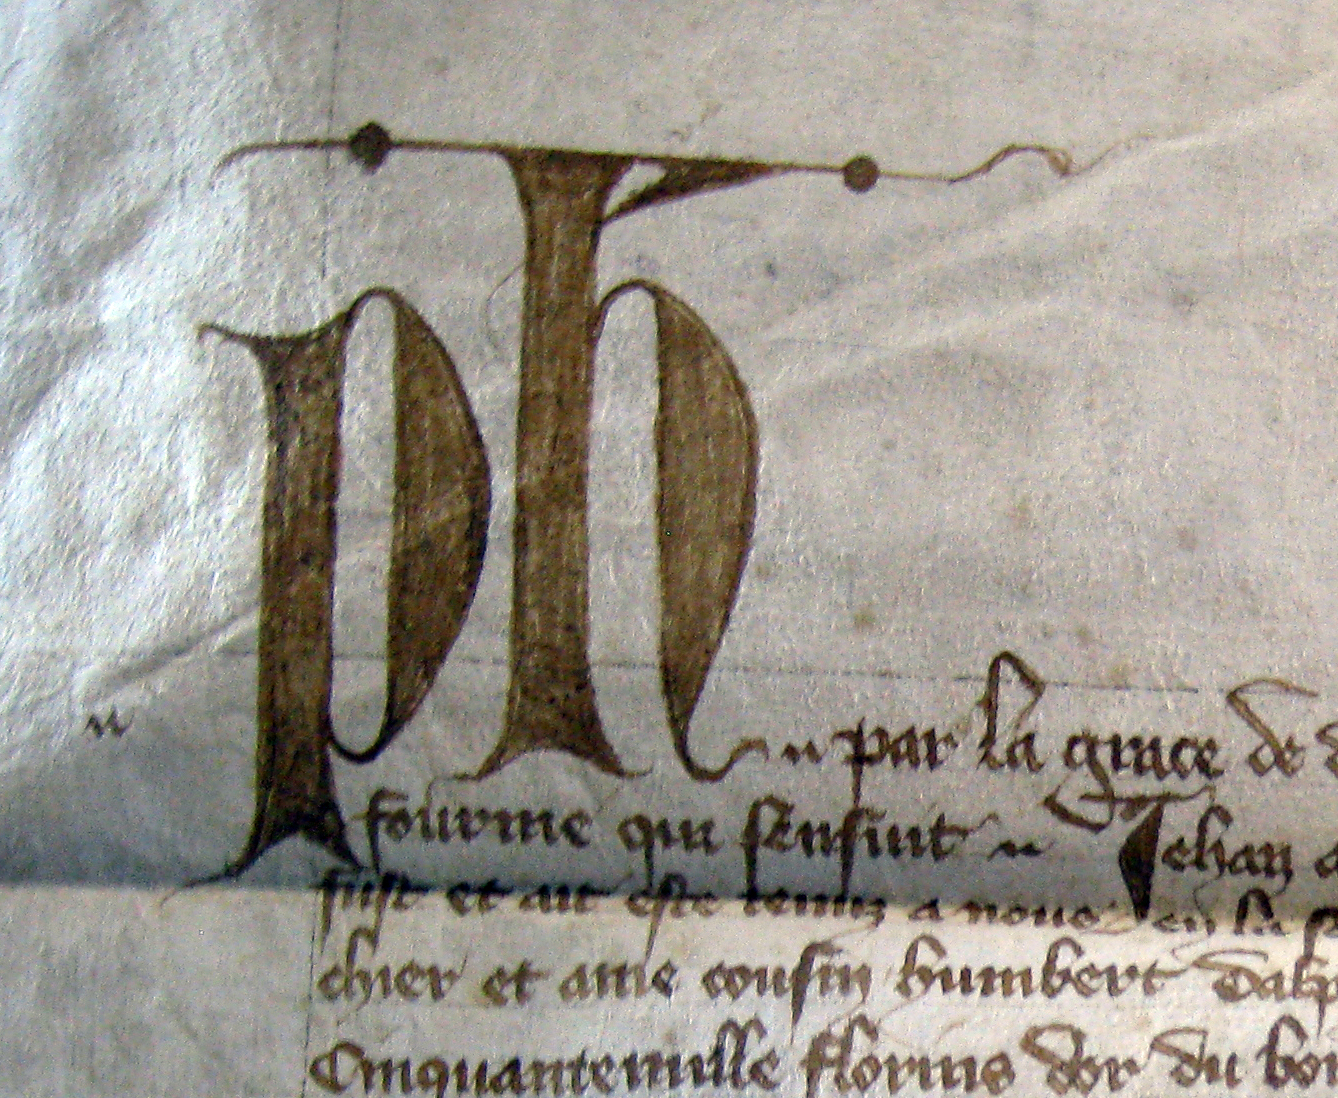 ph par la grace de d
fourme qui sensuit Jehan a
fust et ait este tenuz a nous en la
chier et ame cousin humbert dalp
Cinquantemille florins dor du bon